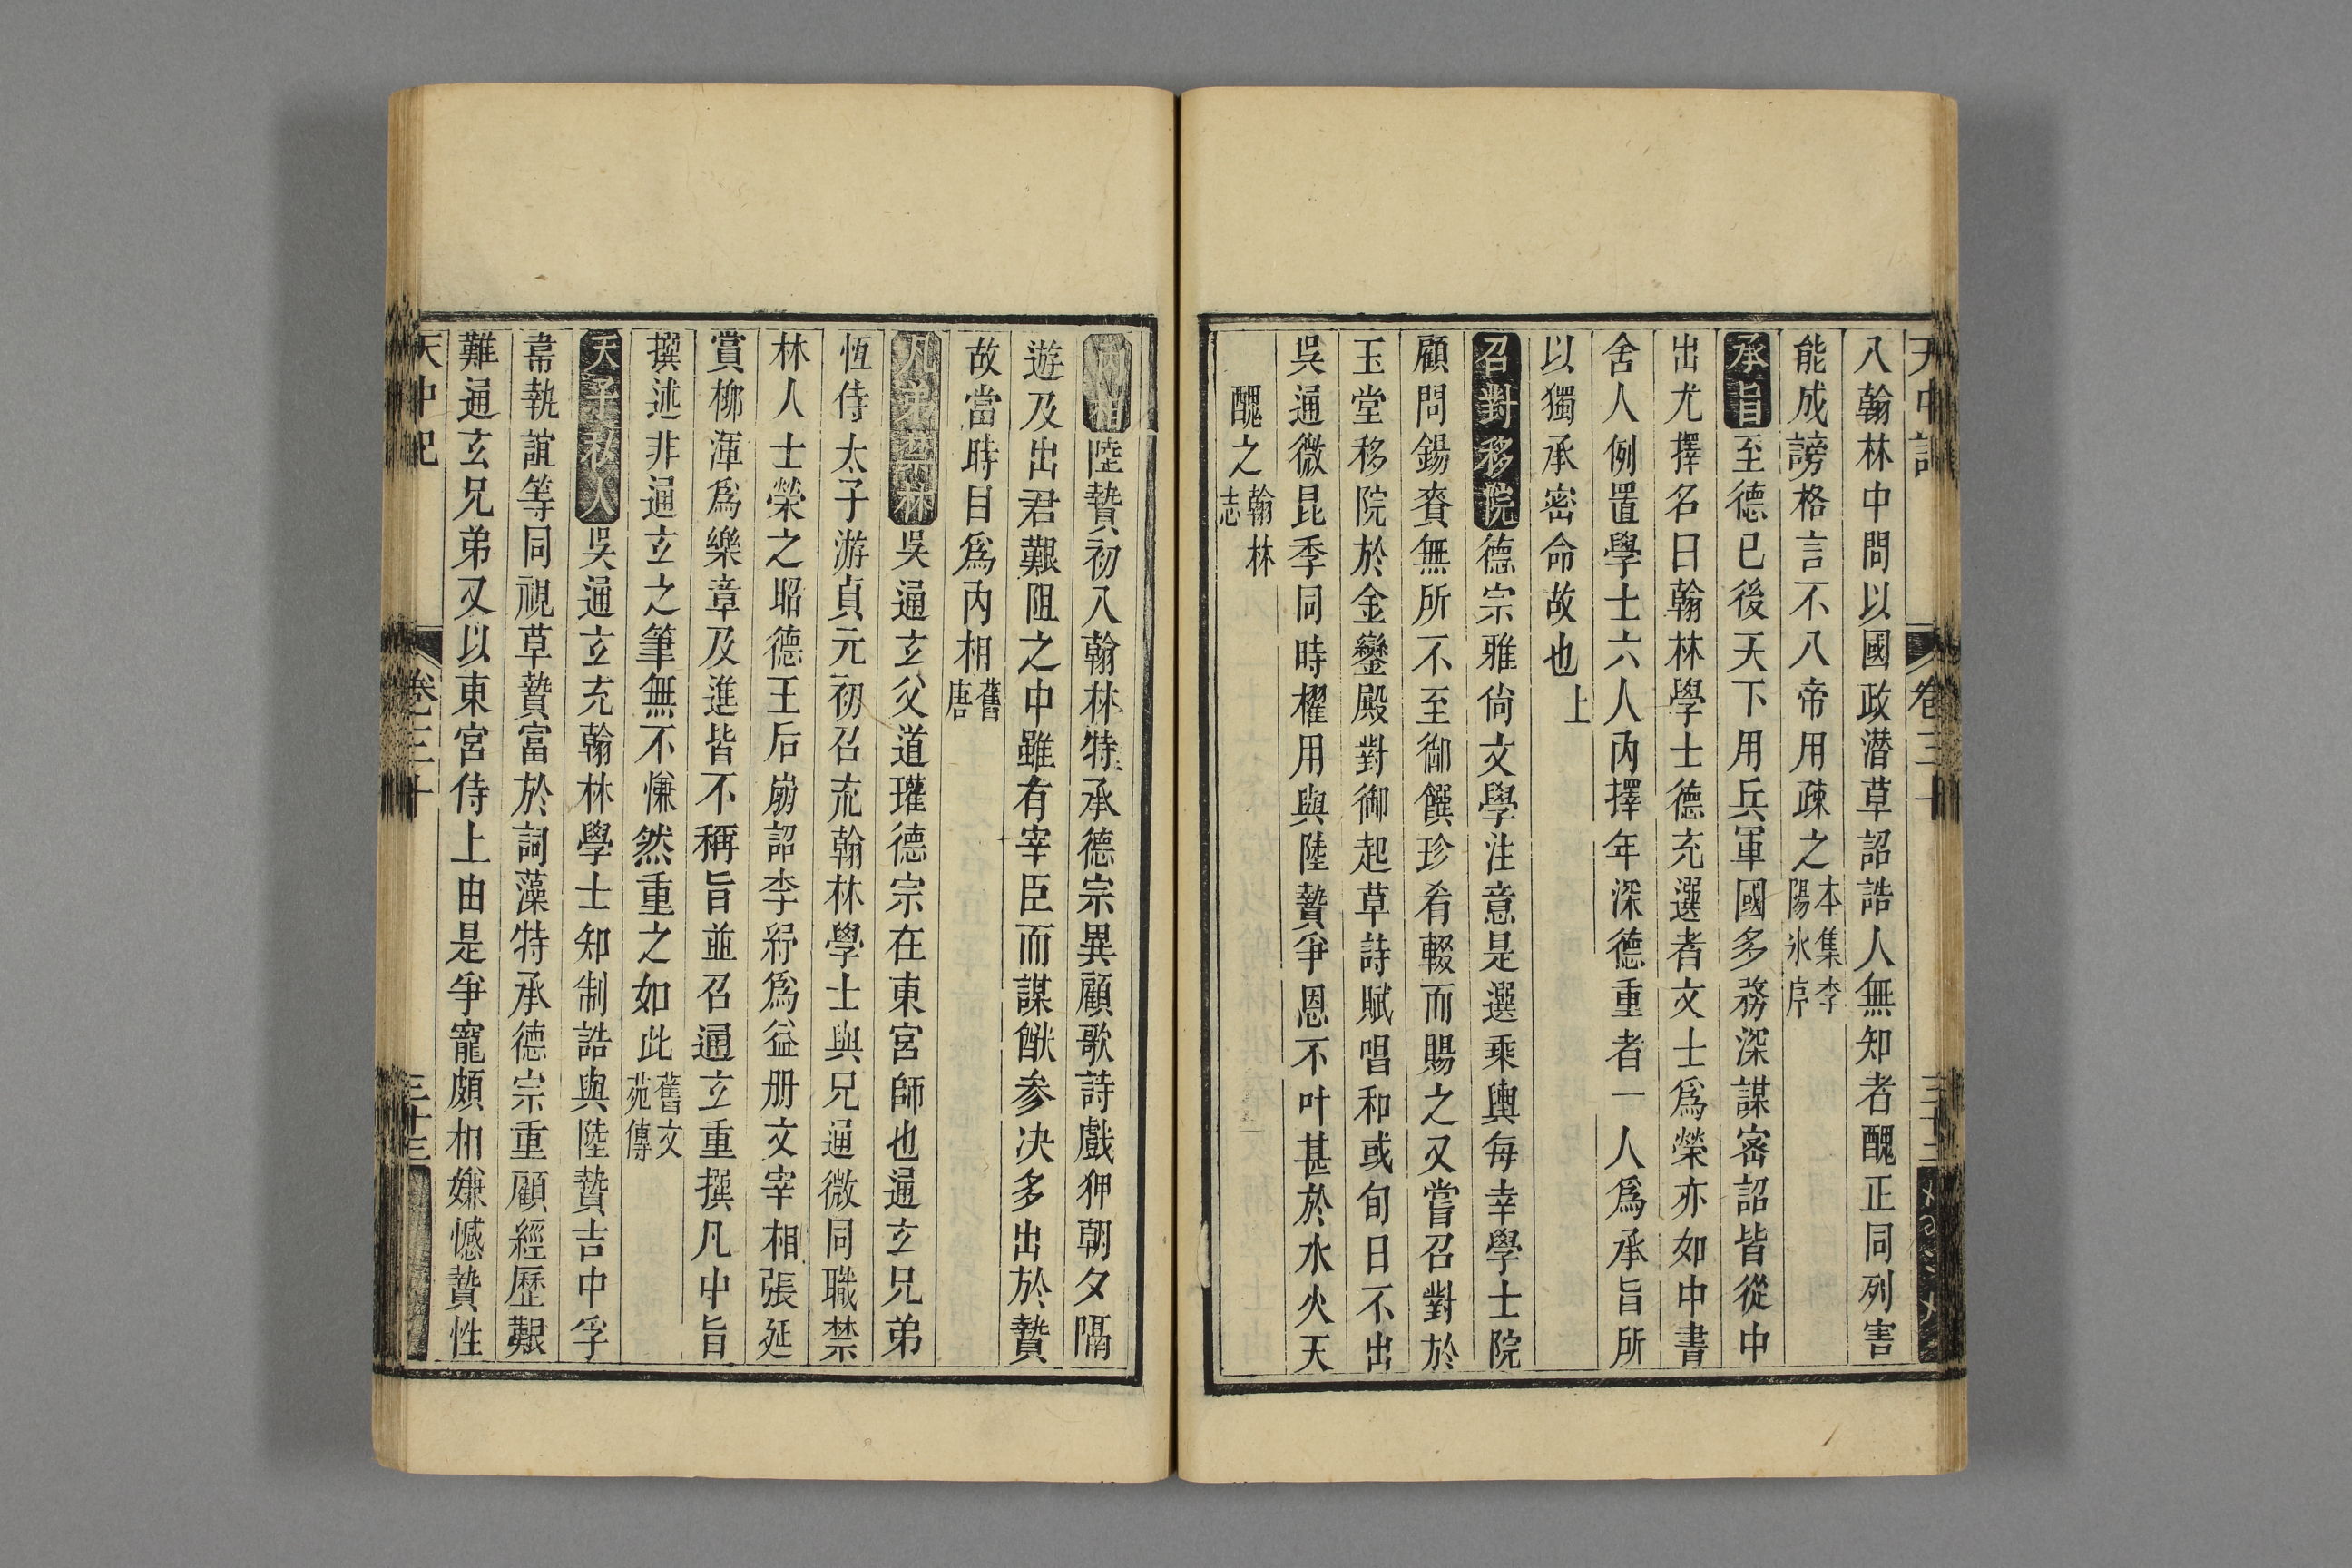 天中記 卷三十 三十二
入翰林中問以國政潛草詔誥人無知者醜正同列害
能成謗格言不入帝用疎之本集李陽氷序
承旨至德已後天下用兵軍國多務深謀密詔皆從中
出尤擇名曰翰林學士德充選者文士爲榮亦如中書
舍人例置學士六人內擇年深德重者一人爲承旨所
以獨承密命故也上
召對移院德宗雅尙文學注意是選乘輿每幸學士院
顧問錫賚無所不至御饌珍肴輟而賜之又嘗召對於
玉堂移院於金鑾殿對御起草詩賦唱和或旬日不出
吳通微昆季同時櫂用與陸贄爭恩不叶甚於水火天
醜之翰林志
內相陸贄初入翰林特承德宗異顧歌詩戲狎朝夕隔
遊及出君艱阻之中雖有宰臣而謀猷参决多出於贄
故當時目爲內相舊唐
兄弟禁林吳通玄父道瓘德宗在東宮師也通玄兄弟
恆侍太子游貞元初召充翰林學士與兄通微同職禁
林人士榮之昭德王后崩詔李紓爲諡册文宰相張延
賞柳渾爲樂章及進皆不稱旨並召通玄重撰凡中旨
撰述非通玄之筆無不慊然重之如此舊文苑傳
天子私人吳通玄充翰林學士知制誥與陸贄吉中孚
韋執誼等同視草贄富於詞藻特承德宗重顧經歷艱
難通玄兄弟又以東宮侍上由是爭寵頗相嫌憾贄性
天中記 卷三十 三十三